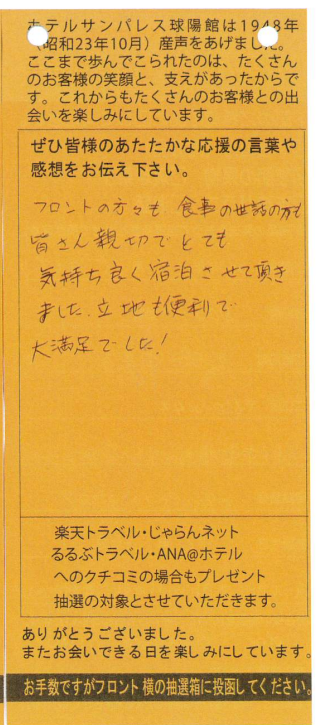 ホテルサンパレス球陽館は1948年
（昭和23年10月）産声をあげました。
ここまで歩んでこられたのは、たくさん
のお客様の笑顔と、支えがあったからで
す。これからもたくさんのお客様との出
会いを楽しみにしています。
ぜひ皆様のあたたかな応援の言葉や
感想をお伝え下さい。
フロントの方々も 食事の世話の方も
皆さん親切でとても
気持ち良く宿泊させて頂き
ました。立地も便利で
大満足でした！
楽天トラベル・じゃらんネット
るるぶトラベル・ANA@ホテル
へのクチコミの場合もプレゼント
抽選の対象とさせていただきます。
ありがとうございました。
またお会いできる日を楽しみにしています。
お手数ですがフロント横の抽選箱に投函してください。